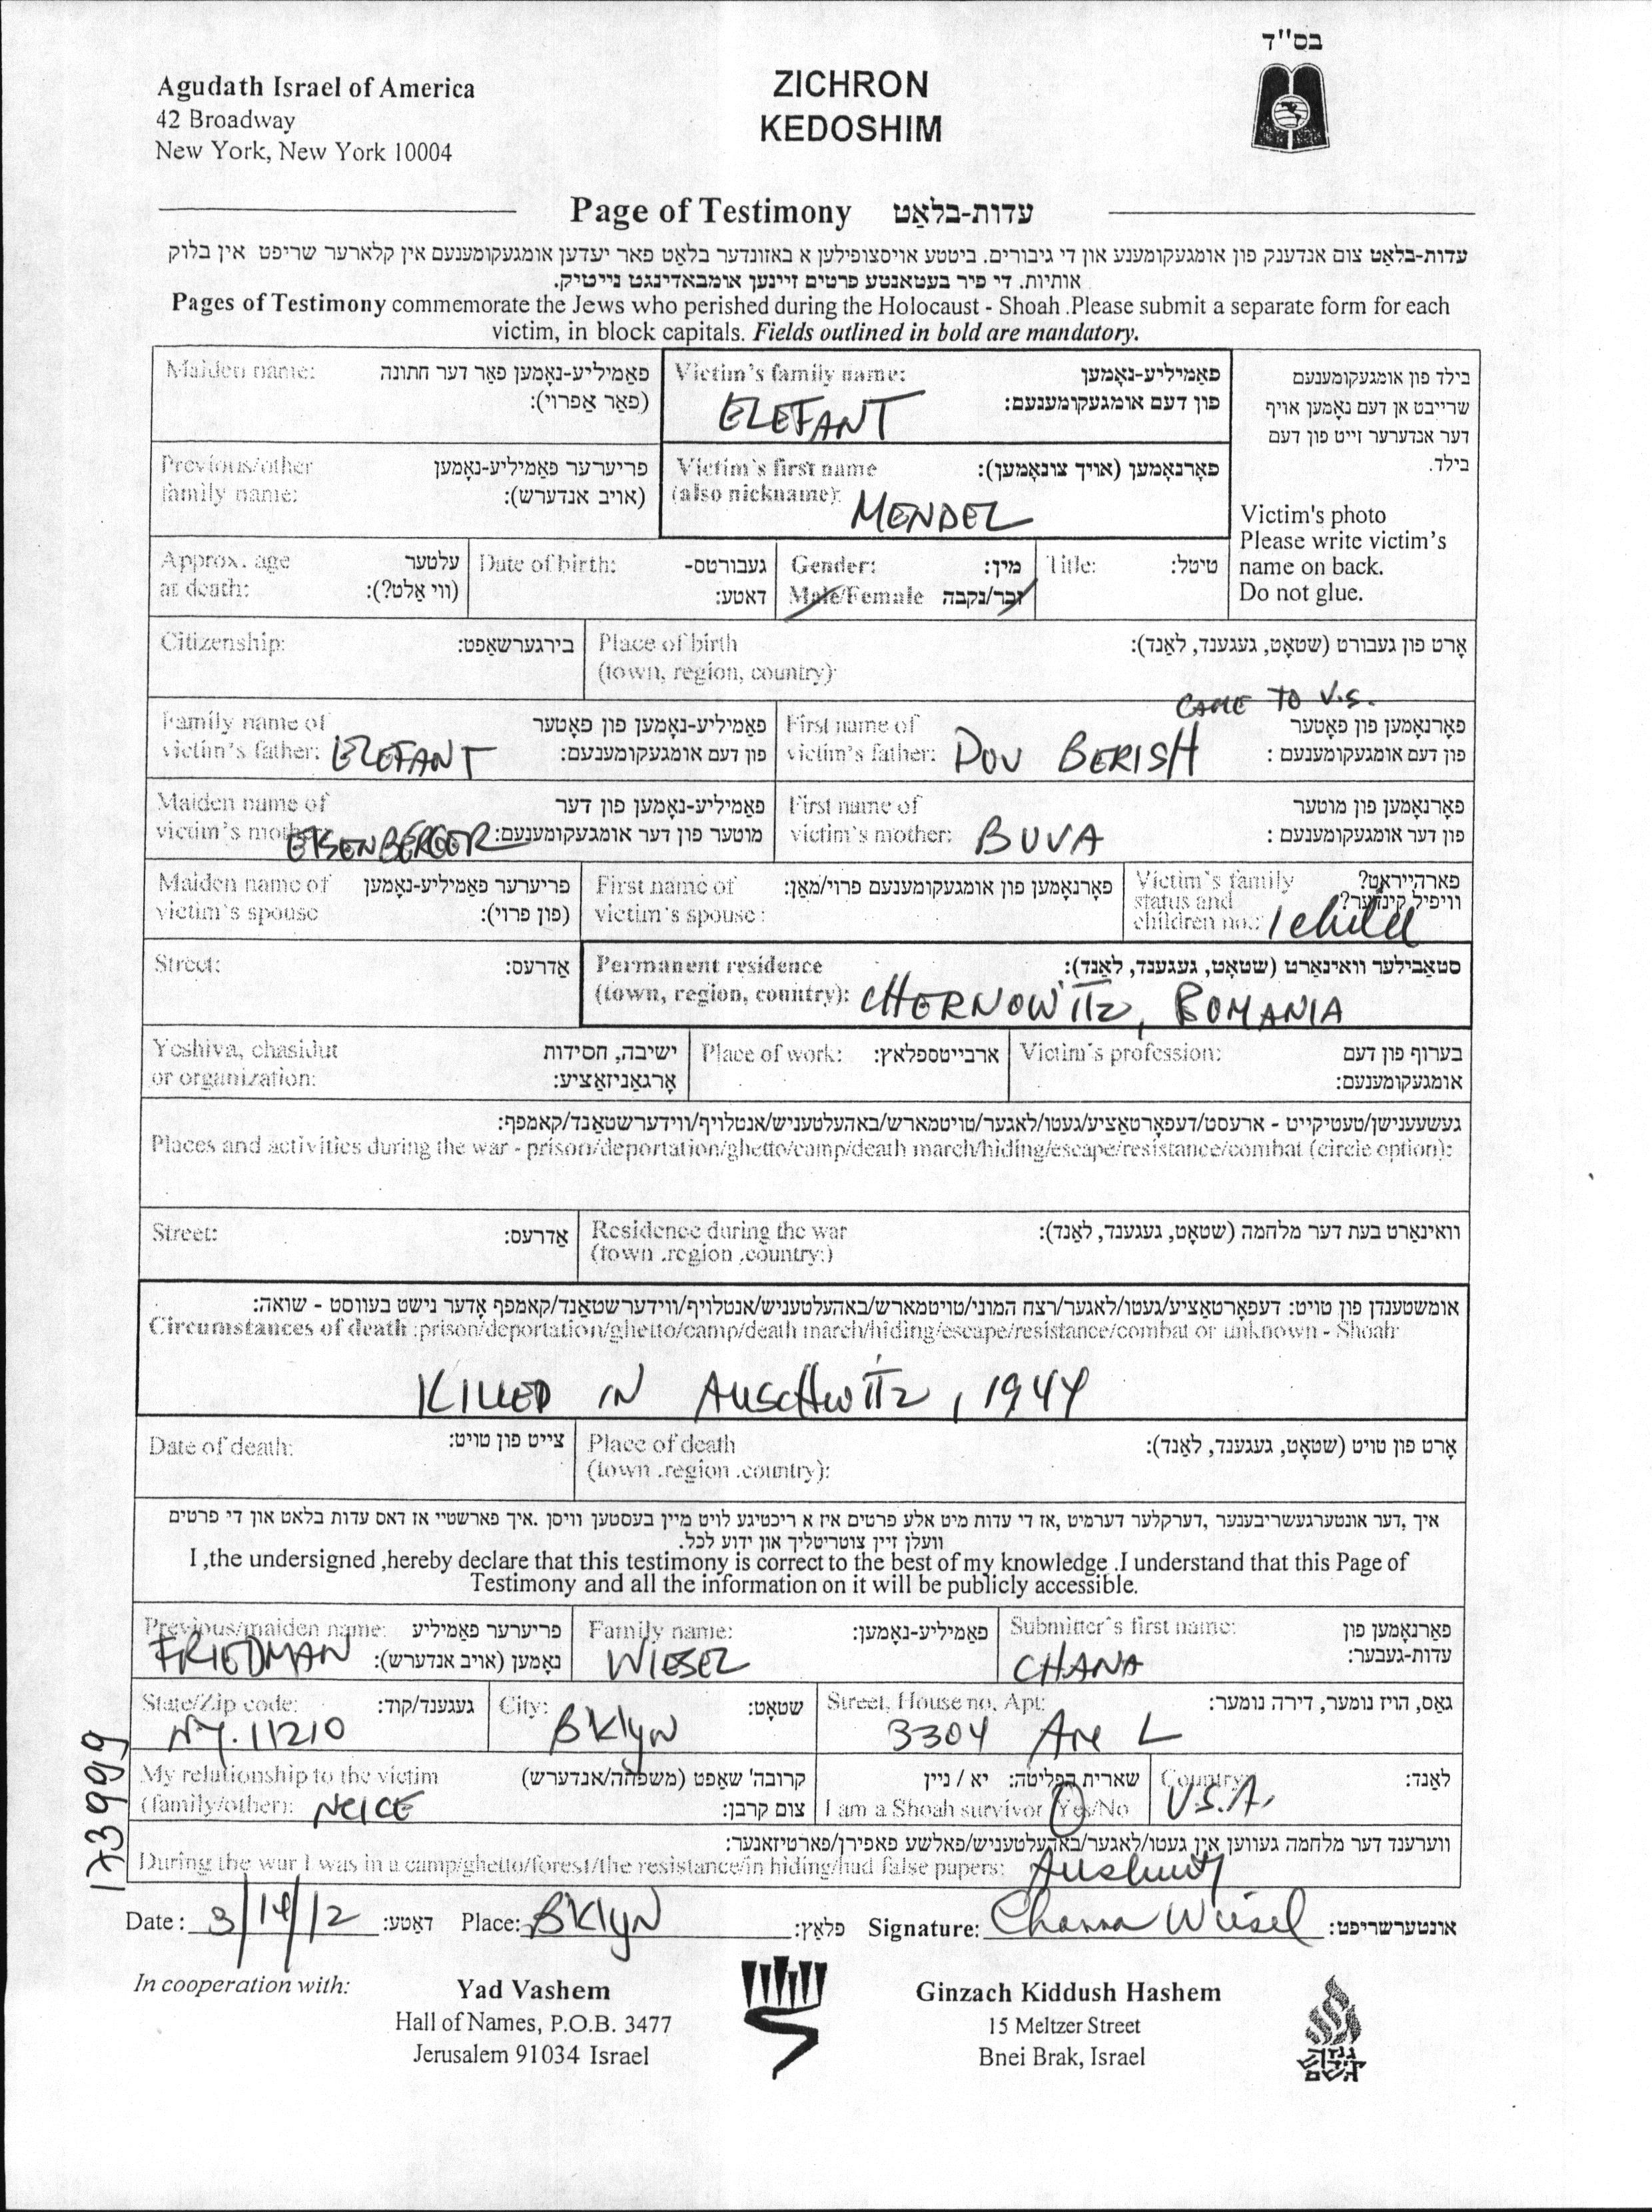 בס"ד
Agudath Israel of America
42 Broadway
New York, New York 10004
ZICHRON
KEDOSHIM
Page of Testimony עדות-בלאַט
עדות-בלאַט צום אנדענק פון אומגעקומענע און די גיבורים. ביטטע אויסצופילען א באזונדער בלאַט פאר יעדען אומגעקומענעם אין קלארער שריפט אין בלוק
אותיות. די פיר בעטאנטע פרטים זיינען אומבאדינגט נייטיק.
Pages of Testimony commemorate the Jews who perished during the Holocaust - Shoah .Please submit a separate form for each
victim, in block capitals. Fields outlined in bold are mandatory.
Maiden name: פאַמיליע-נאָמען פאַר דער חתונה
(פאַר אַפרוי):
Victim's family name: פאַמיליע-נאָמען
פון דעם אומגעקומענעם:
ELEFANT
בילד פון אומגעקומענעם
שרייבט אן דעם נאָמען אויף
דער אנדערער זייט פון דעם
בילד.
Victim's photo
Please write victim's
name on back.
Do not glue.
Previous/other פריערער פאַמיליע-נאָמען
family name: (אויב אנדערש):
Victim's first name פאָרנאָמען (אויך צונאָמען):
(also nickname):
MENDEL
Approx. age עלטער
at death: (ווי אַלט?):
Date of birth: געבורטס-
דאטע:
Gender: מין:
Male/Female זכר/נקבה
Title: טיטל:
Citizenship: בירגערשאַפט:
Place of birth אָרט פון געבורט (שטאָט, געגענד, לאַנד):
(town, region, country):
CAME TO U.S.
Family name of פאַמיליע-נאָמען פון פאָטער
victim's father: ELEFANT פון דעם אומגעקומענעם:
First name of פאָרנאָמען פון פאָטער
victim's father: DOV BERISH פון דעם אומגעקומענעם :
Maiden name of פאַמיליע-נאָמען פון דער
victim's mother: EISENBERGER מוטער פון דער אומגעקומענעם:
First name of פאָרנאָמען פון מוטער
victim's mother: BUVA פון דער אומגעקומענעם :
Maiden name of פריערער פאַמיליע-נאָמען
victim's spouse (פון פרוי):
First name of פאָרנאָמען פון אומגעקומענעם פרוי/מאַן:
victim's spouse :
Victim's family פארהייראַט?
status and וויפיל קינדער?
children no.: 1 child
Street: אַדרעס:
Permanent residence סטאַבילער וואינארט (שטאָט, געגענד, לאַנד):
(town, region, country): CHERNOWITZ, ROMANIA
Yeshiva, chasidut ישיבה, חסידות
or organization: אָרגאַניזאַציע:
Place of work: ארבייטספלאץ:
Victim's profession: בערוף פון דעם
אומגעקומענעם:
געשעענישן/טעטיקייט - ארעסט/דעפאָרטאַציע/געטו/לאגער/טויטמארש/באהעלטעניש/אנטלויף/ווידערשטאַנד/קאמפף:
Places and activities during the war - prison/deportation/ghetto/camp/death march/hiding/escape/resistance/combat (circle option):
Street: אַדרעס:
Residence during the war וואינארט בעת דער מלחמה (שטאָט, געגענד, לאַנד):
(town .region .country:)
אומשטענדן פון טויט: דעפאָרטאַציע/געטו/לאגער/רצח המוני/טויטמארש/באהעלטעניש/אנטלויף/ווידערשטאַנד/קאמפף אָדער נישט בעווסט - שואה:
Circumstances of death :prison/deportation/ghetto/camp/death march/hiding/escape/resistance/combat or unknown - Shoah
KILLED IN AUSCHWITZ, 1944
Date of death: צייט פון טויט:
Place of death אָרט פון טויט (שטאָט, געגענד, לאַנד):
(town .region .country):
איך ,דער אונטערגעשריבענער ,דערקלער דערמיט ,אז די עדות מיט אלע פרטים איז א ריכטיגע לויט מיין בעסטען וויסן .איך פארשטיי אז דאס עדות בלאט און די פרטים
וועלן זיין צוטריטליך און ידוע לכל.
I ,the undersigned ,hereby declare that this testimony is correct to the best of my knowledge .I understand that this Page of
Testimony and all the information on it will be publicly accessible.
Previous/maiden name: פריערער פאַמיליע
FRIEDMAN נאָמען (אויב אנדערש):
Family name: פאַמיליע-נאָמען:
WIESEL
Submitter's first name: פאָרנאָמען פון
עדות-געבער:
CHANA
State/Zip code: געגענד/קוד:
NY. 11210
City: שטאָט:
BKlyN
Street, House no, Apt: גאַס, הויז נומער, דירה נומער:
3304 Ave L
My relationship to the victim קרובה' שאַפט (משפּחה/אנדערש)
(family/other): NEICE צום קרבן:
שארית הפליטה: יא / ניין
I am a Shoah survivor Yes/No
Country: לאַנד:
U.S.A.
ווערענד דער מלחמה געווען אין געטו/לאגער/באהעלטעניש/פאלשע פאפירן/פארטיזאנער:
During the war I was in a camp/ghetto/forest/the resistance/in hiding/had false papers:
173999
Date: 3/14/12 דאַטע: Place: BKlyN פלאַץ: Signature: Channa Wiesel אונטערשריפט:
In cooperation with:
Yad Vashem
Hall of Names, P.O.B. 3477
Jerusalem 91034 Israel
Ginzach Kiddush Hashem
15 Meltzer Street
Bnei Brak, Israel
גנזך
קידוש
השם